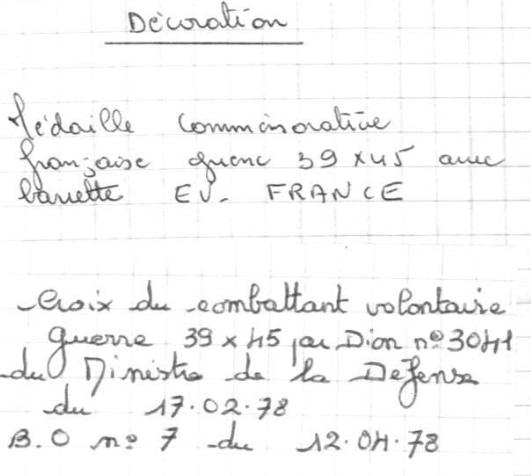 Décoration
Médaille Commémorative
française guerre 39 x 45 avec
barrette EV. FRANCE
Croix du combattant volontaire
guerre 39 x 45 par Dion n° 3041
du Ministre de la Defense
du 17.02.78
B.O n° 7 du 12.04.78